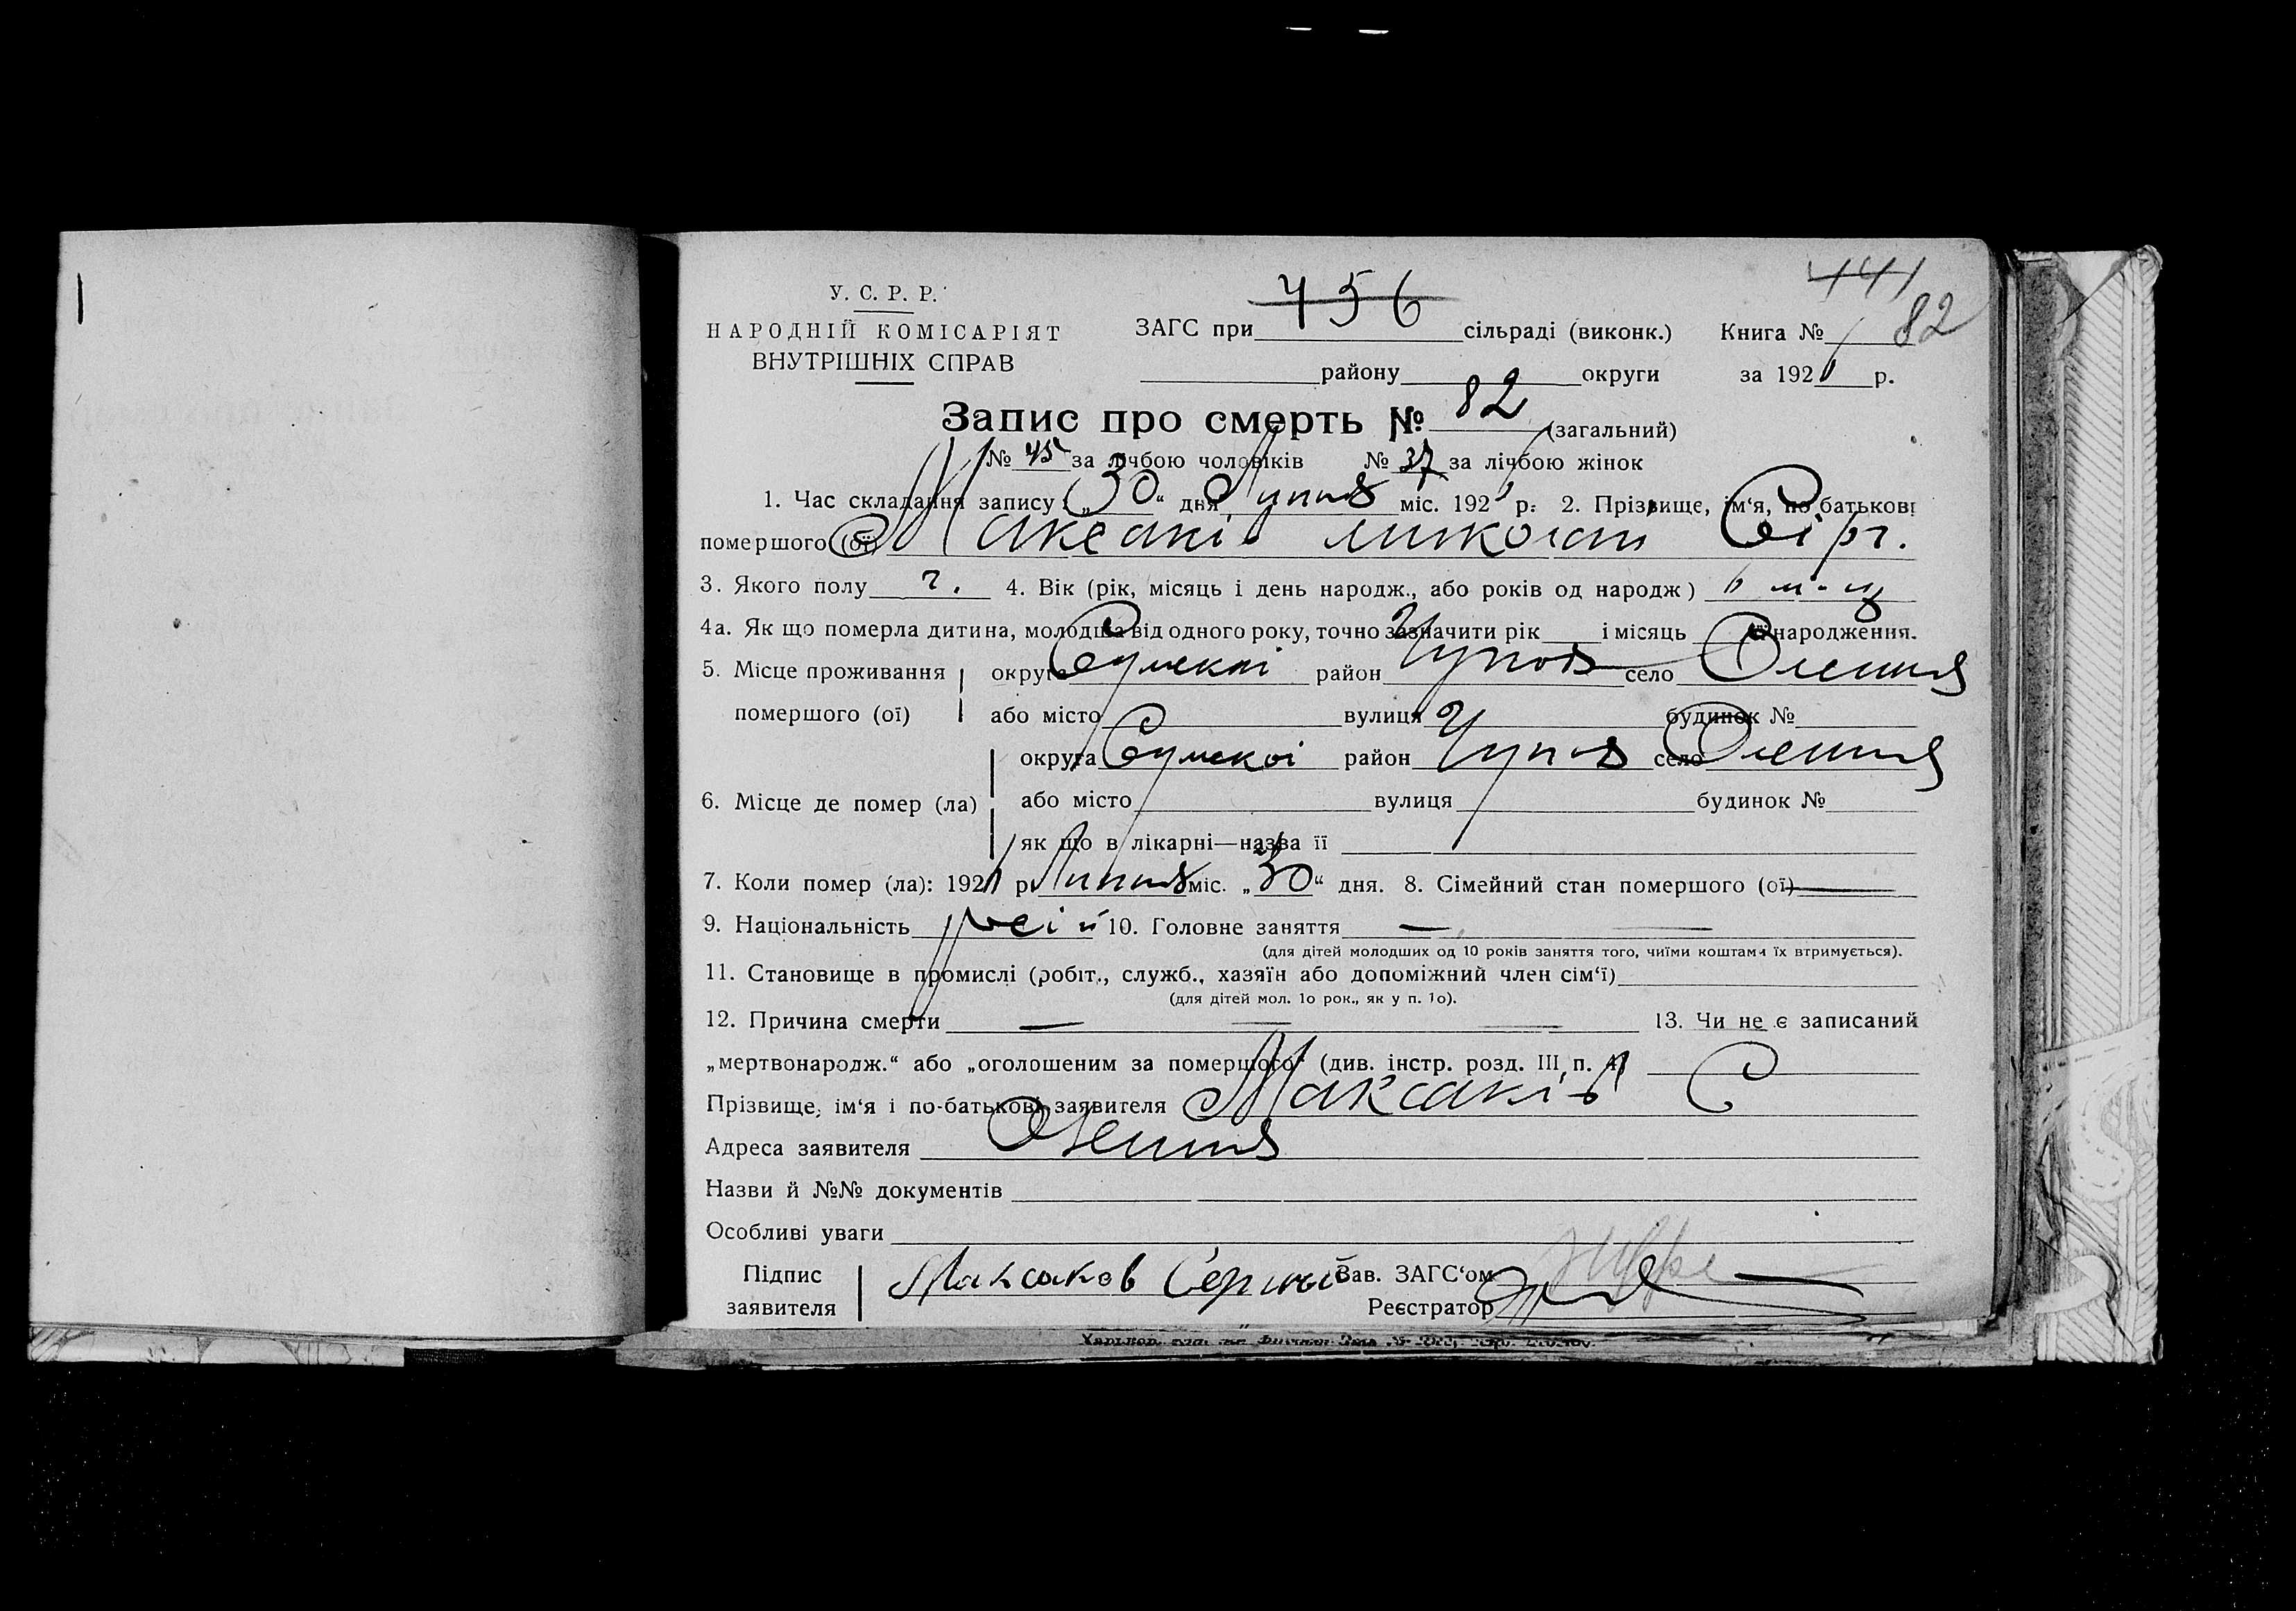 441
У. С. Р. Р.
НАРОДНІЙ КОМІСАРІЯТ
ВНУТРІШНІХ СПРАВ
ЗАГС при 456 сільраді (виконк.) Книга № 82
району округи за 192 р.
Запис про смерть № 82 (загальний)
№ 45 за лічбою чоловіків № 37 за лічбою жінок
1. Час складання запису: „30“ дня Липня міс. 192 р. 2. Прізвище, ім‘я, по батькові
помершого (ої) Максаків Миколай Сірг.
3. Якого полу ч. 4. Вік (рік, місяць і день народж., або років од народж)
4а. Як що померла дитина, молодша від одного року, точно зазначити рік і місяць її народження.
5. Місце проживання округа Сумскої район село
помершого (ої) або місто вулиця будинок №
округа Сумскої район село
6. Місце де помер (ла) або місто вулиця будинок №
як що в лікарні—назва її
7. Коли помер (ла): 192 р. Липня міс. „30“ дня. 8. Сімейний стан помершого (ої) —
9. Національність 10. Головне заняття —
(для дітей молодших од 10 років заняття того, чиїми коштами їх втримується).
11. Становище в промислі (робіт., служб., хазяїн або допоміжний член сім‘ї)
(для дітей мол. 1о рок., як у п. 1о).
12. Причина смерти — — — 13. Чи не є записаний
„мертвонародж.“ або „оголошеним за померщого“ (див. інстр. розд. III, п. 4)
Прізвище, ім‘я і по-батькові заявителя Максаків С
Адреса заявителя
Назви й №№ документів
Особливі уваги
Підпис Максаков Сергий Зав. ЗАГС‘ом
заявителя Реєстратор